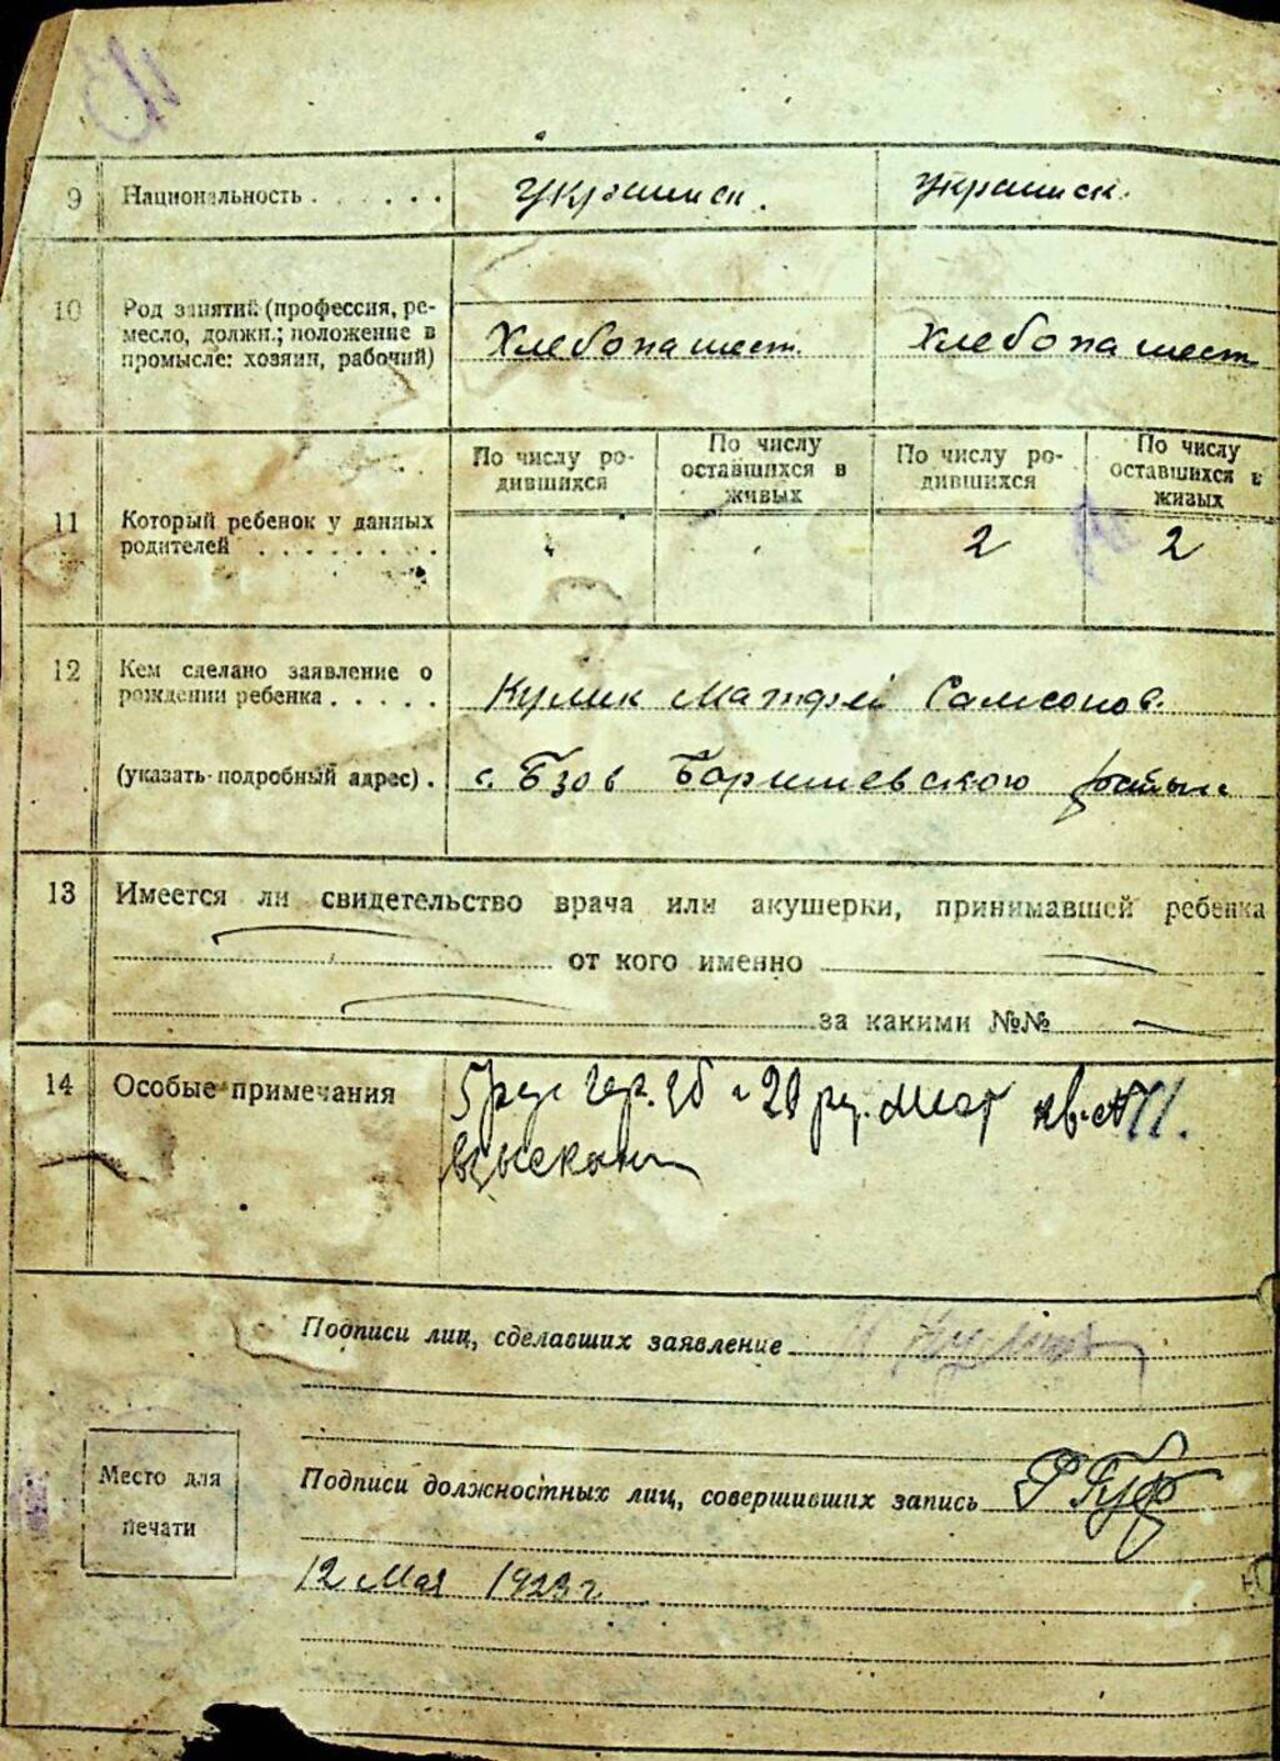 9 Национальность . . . . . . Украинск. Украинск.
10 Род занятий (профессия, ре-
месло, должн.; положение в
промысле: хозяин, рабочий) Хлебопашест. Хлебопашест
По числу ро-
дившихся
По числу
оставшихся в
живых
По числу ро-
дившихся
По числу
оставшихся в
живых
11 Который ребенок у данных
родителей . . . . . . . . 2 2
12 Кем сделано заявление о
рождении ребенка . . . . . Кулик Матфей Самсонов.
(указать подробный адрес) . с. Бзов Баришевскою
13 Имеется ли свидетельство врача или акушерки, принимавшей ребенка
от кого именно
за какими №№
14 Особые примечания
взыскан
Подписи лиц, сделавших заявление
Место для
печати
Подписи должностных лиц, совершивших запись
12 Мая 1923 г.